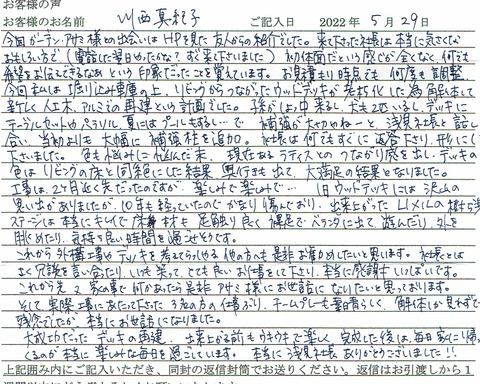 お客様の声
お客様のお名前 川西真紀子 ご記入日 2022年5月29日
今回ガーデンアルミ様との出会いはHPを見た友人からの紹介でした。来て下さった社長は本当に気さくな
おもしろい方で(電話した翌日だったかな?すぐ来て下さいました)初対面だという感じが全くなく、何でも
希望をお伝えできるなあという印象だったことを覚えています。お見積もり時点でも何度も調整、
今回私は掘り込み車庫の上、リビングからつながったウッドデッキが老朽化した為解体して
新しく人工木、アルミでの再建という計画でした。孫がよく来るし、犬も2匹いるし、デッキに
テーブルセットやパラソル、夏にはプールもするし…で補強が大切やねーと浅見社長と話し
合い、当初よりも大幅に補強柱を追加。社長は何でもすぐに返答下さり、形にして
下さいました。色も悩みに悩んだ末、現在あるラティスとのつながり感を出し、デッキの
色はリビングの床と同色にした結果奥行きも出て、大満足の結果となりました。
工事は2ヶ月近く先だったのですが、楽しみで楽しみで… 旧ウッドデッキには沢山の
思い出がありましたが、10年も経っていたのでかなり傷んでおり、出来上がった LIXILの樹ら
ステージは本当にキレイで床材も足触り良く裸足でベランダに出て遊んだり、外を
眺めたり、気持ち良い時間を過ごせそうです。
これから外構工事やデッキを考えてらっしゃる他の方も是非お薦めしたいと思います。社長とは
よく冗談を言い合たり、いつも笑って、とても良いお仕事をして下さり、本当に感謝でいっぱいです。
これから先又家の事で何かあったら是非アルミ様にお世話になりたいと思っております。
そして実際工事にあたって下さった3名の方の仕事ぶり、チームプレーも素晴らしく、解体しか見れずで
残念でしたが本当にお世話になりました。
大成功だったデッキの再建、出来上がる前もウキウキで楽しく、完成した後は、毎日家に帰って
くるのが本当に楽しみな毎日を過ごしています。本当に浅見社長ありがとうございました!!
上記囲み内にご記入いただき、同封の返信封筒でお送りください。返信はお引渡しから1